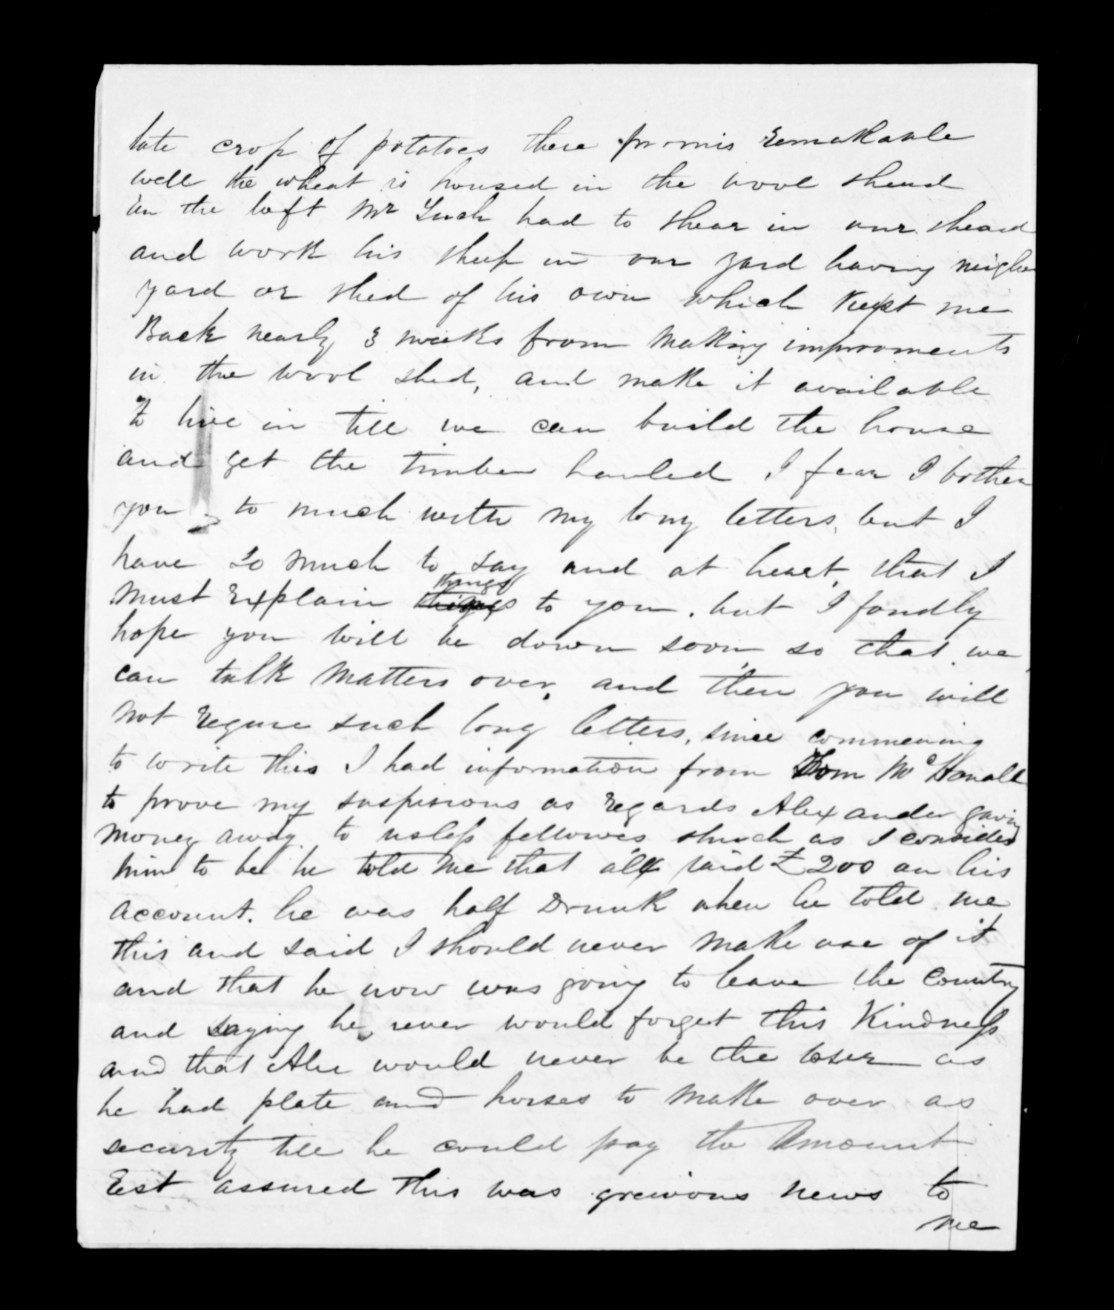 late crop of potatoes there promis remakable
well the wheat is housed in the wool shead
in the loft Mr Tuch had to shear in our shead
and work his sheep in our yard having neigher
yard or shed of his own which Kept me
Back nearly 3 weeks from making improments
in the wool shed, and make it available
to live in till we can build the house
and get the timber hauled I fear I bother
you to much with my long letters, but I
have so much to say and at heart, that I
must Explain things things to you, but I fondly
hope you will be down soon, so that we
can talk matters over, and then you will
not requre such long letters, since commening
to write this I had information from Dom McDonall
to prove my suspisions as regards Alexander gaving
money away to usless fellowes shuch as I consided
him to be he told me that alex paid £200 on his
account. he was half Drunk when he told me
this and said I should never make use of it
and that he now was going to leave the country
and saying he never would forget this Kindness
and that Alec would never be the loser as
he had plate and horses to make over as
security till he could pay the Amount
Est assured this was greivous news to
me